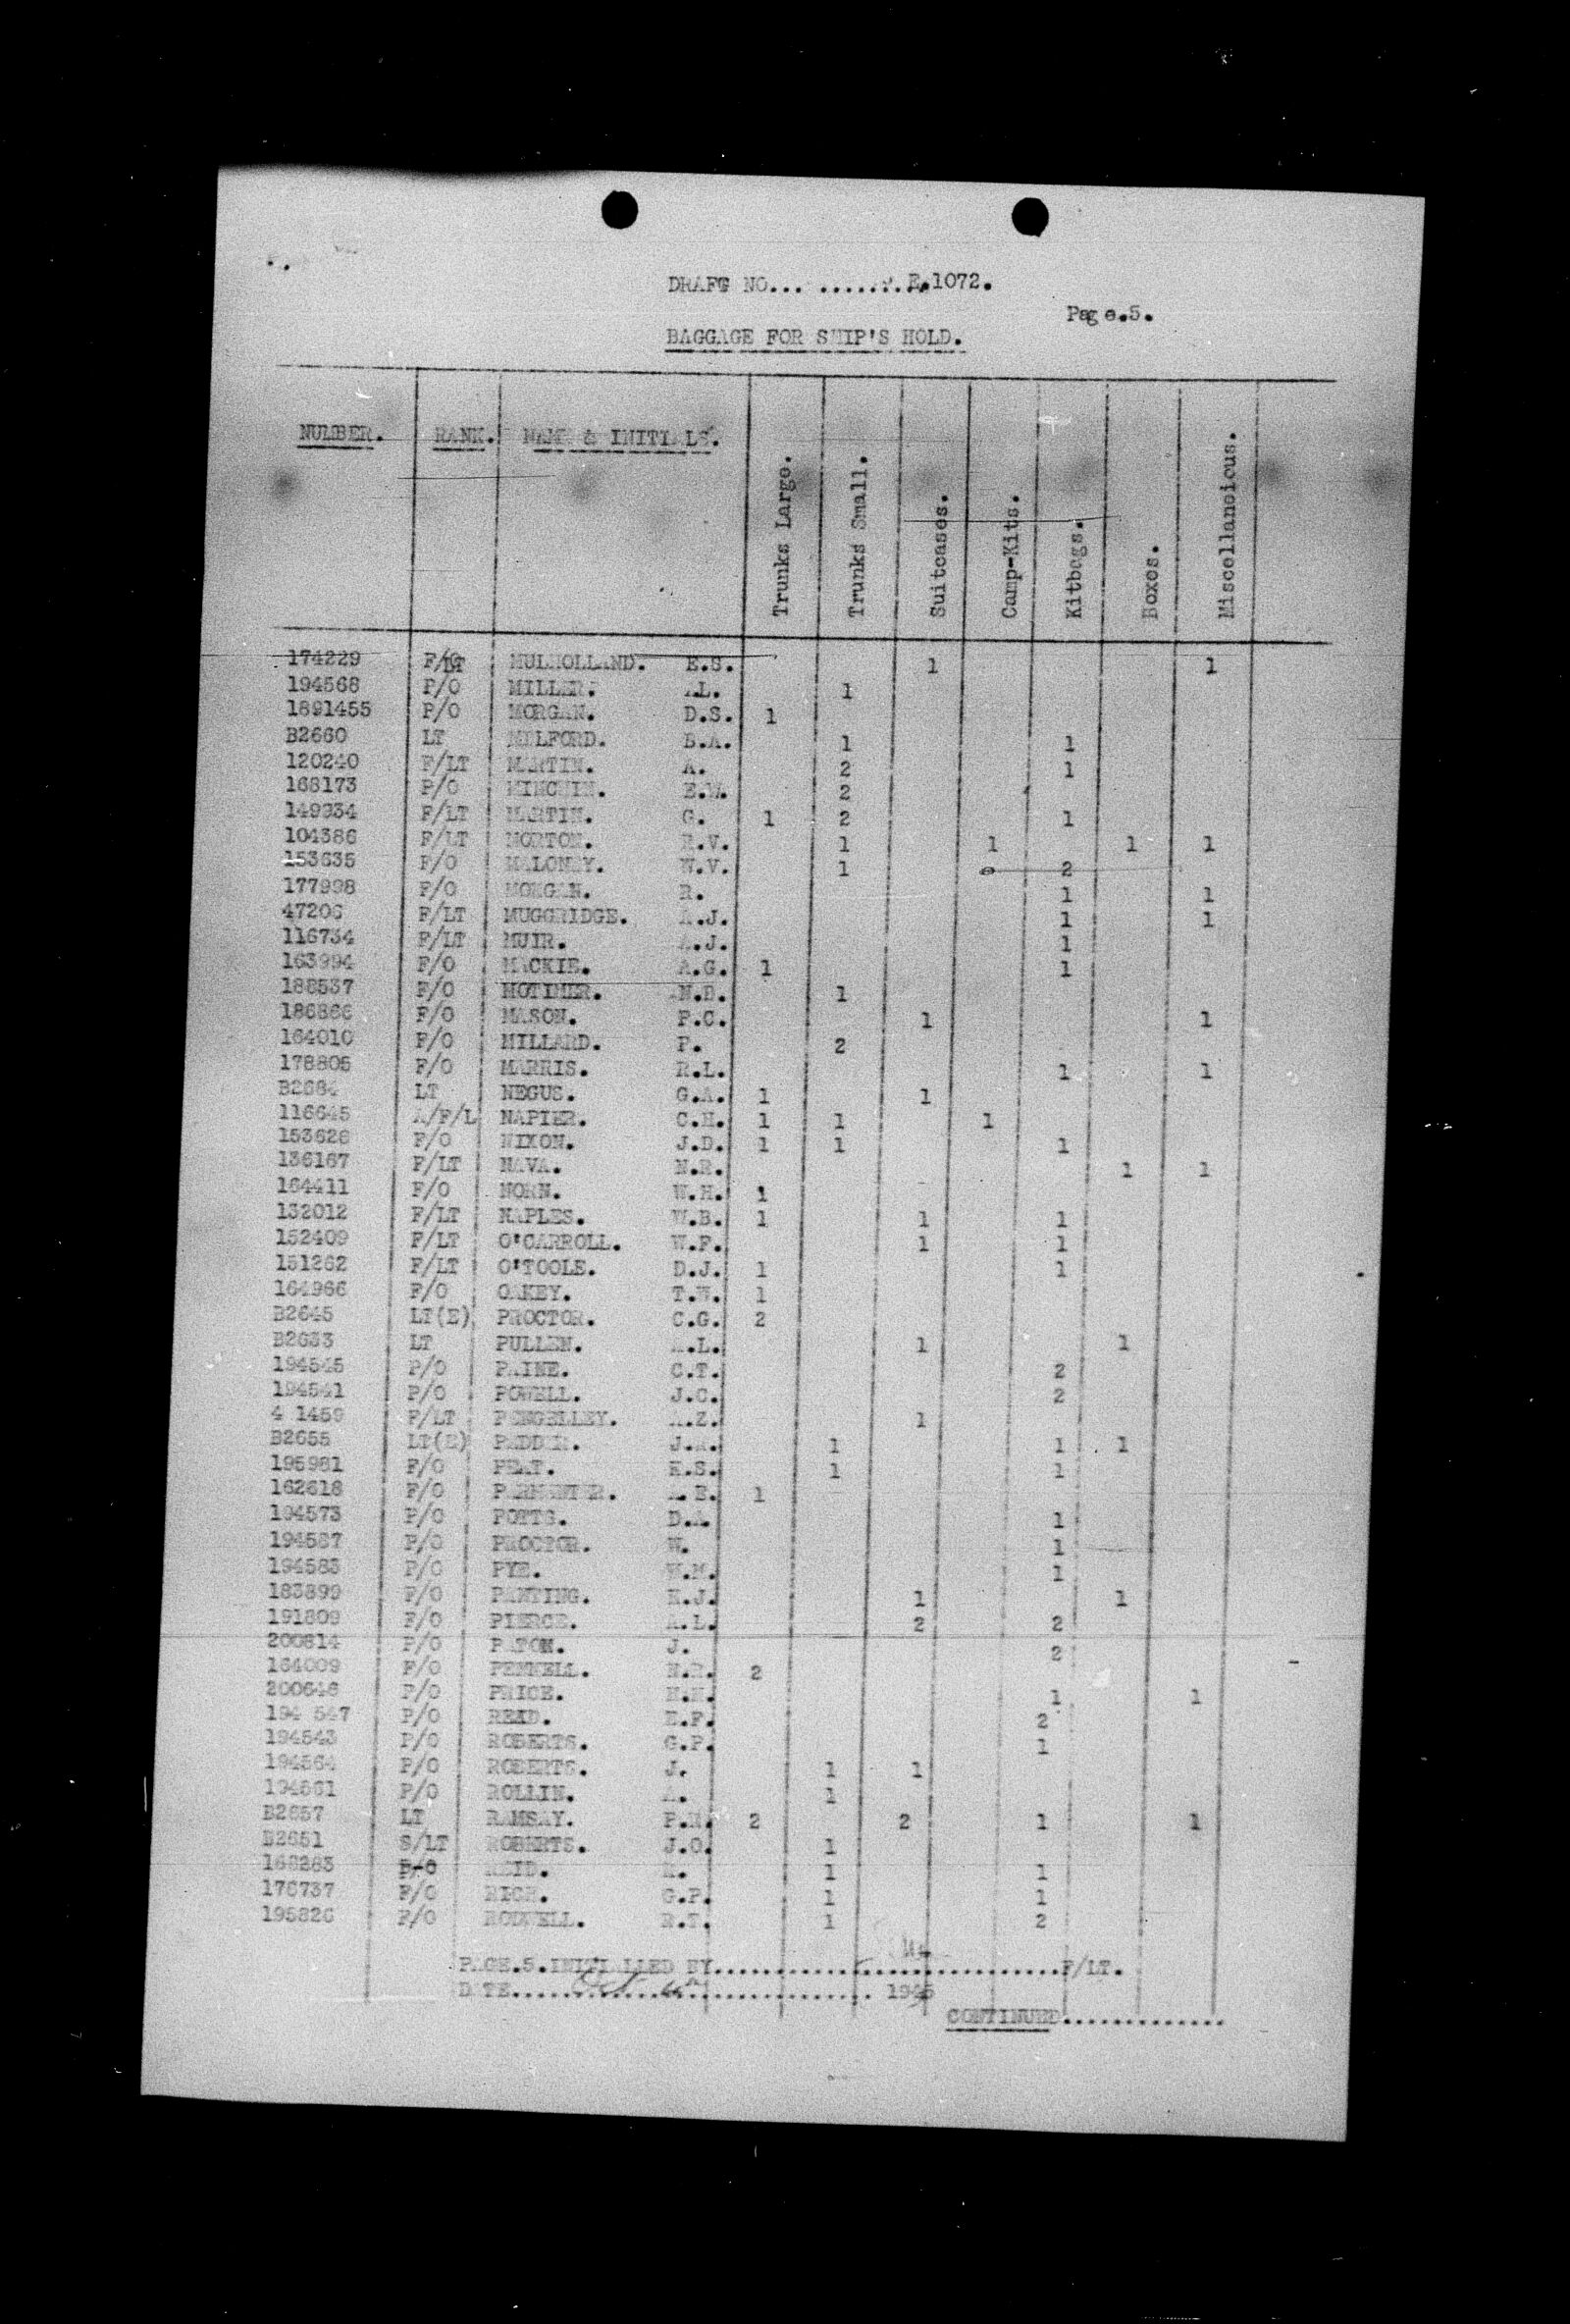 DRAFT NO... ......... E.1072.
Page.5.
BAGGAGE FOR SHIP'S HOLD.
NUMBER. RANK. NAME & INITIALS. Trunks Large. Trunks Small. Suitcases. Camp-Kits. Kitbags. Boxes. Miscellansious.
174229 F/LT MULHOLLAND. E.S. 1 1
194568 P/O MILLER. A.L. 1
1891455 P/O MORGAN. D.S. 1
B2660 LT MELFORD. B.A. 1 1
120240 F/LT MARTIN. A. 2 1
168173 P/O MINCHIN. E.W. 2
149934 F/LT MARTIN. G. 1 2 1
104386 F/LT MORTON. R.V. 1 1 1 1
153635 F/O MALONEY. W.V. 1 2
177998 F/O MORGAN. R. 1 1
47206 F/LT MUGGRIDGE. A.J. 1 1
116734 F/LT MUIR. A.J. 1
163994 F/O MACKIE. A.G. 1 1
188537 F/O MOTIMER. N.B. 1
186866 F/O MASON. P.C. 1 1
164010 F/O MILLARD. P. 2
178805 F/O MARRIS. R.L. 1 1
B2684 LT NEGUS. G.A. 1 1
116645 A/F/L NAPIER. C.H. 1 1 1
153626 F/O NIXON. J.D. 1 1 1
136167 F/LT NAVA. N.R. 1 1
164411 F/O NORN. W.H. 1
132012 F/LT NAPLES. W.B. 1 1 1
152409 F/LT O'CARROLL. W.F. 1 1
151262 F/LT O'TOOLE. D.J. 1 1
164966 F/O OAKEY. T.W. 1
B2645 LT(E) PROCTOR. C.G. 2
B2633 LT PULLEN. A.L. 1 1
194545 P/O PAINE. C.T. 2
194541 P/O POWELL. J.C. 2
4 1459 F/LT PENGELLEY. A.Z. 1
B2655 LT(E) PEDDER. J.A. 1 1 1
195981 F/O PEAT. K.S. 1 1
162618 F/O PARMENTER. A.E. 1
194573 P/O POTTS. D.A. 1
194587 P/O PROCTOR. W. 1
194583 P/O PYE. W.M. 1
183899 F/O PANTING. K.J. 1 1
191809 F/O PIERCE. A.L. 2 2
200814 P/O PATON. J. 2
164009 F/O PENNELL. H.R. 2
200646 P/O PRICE. N.N. 1 1
194 547 P/O READ. E.F. 2
194543 P/O ROBERTS. G.P. 1
194564 P/O ROBERTS. J. 1 1
194561 P/O ROLLIN. A. 1
B2657 LT RAMSAY. P.N. 2 2 1 1
B2651 S/LT ROBERTS. J.O. 1
168283 REID. 1 1
176737 F/O RICH. G.P. 1 1
195826 P/O RODWELL. R.T. 1 2
PAGE.5.INITIALLED BY..............................F/LT.
DATE.............................. 1945
CONTINUED..............